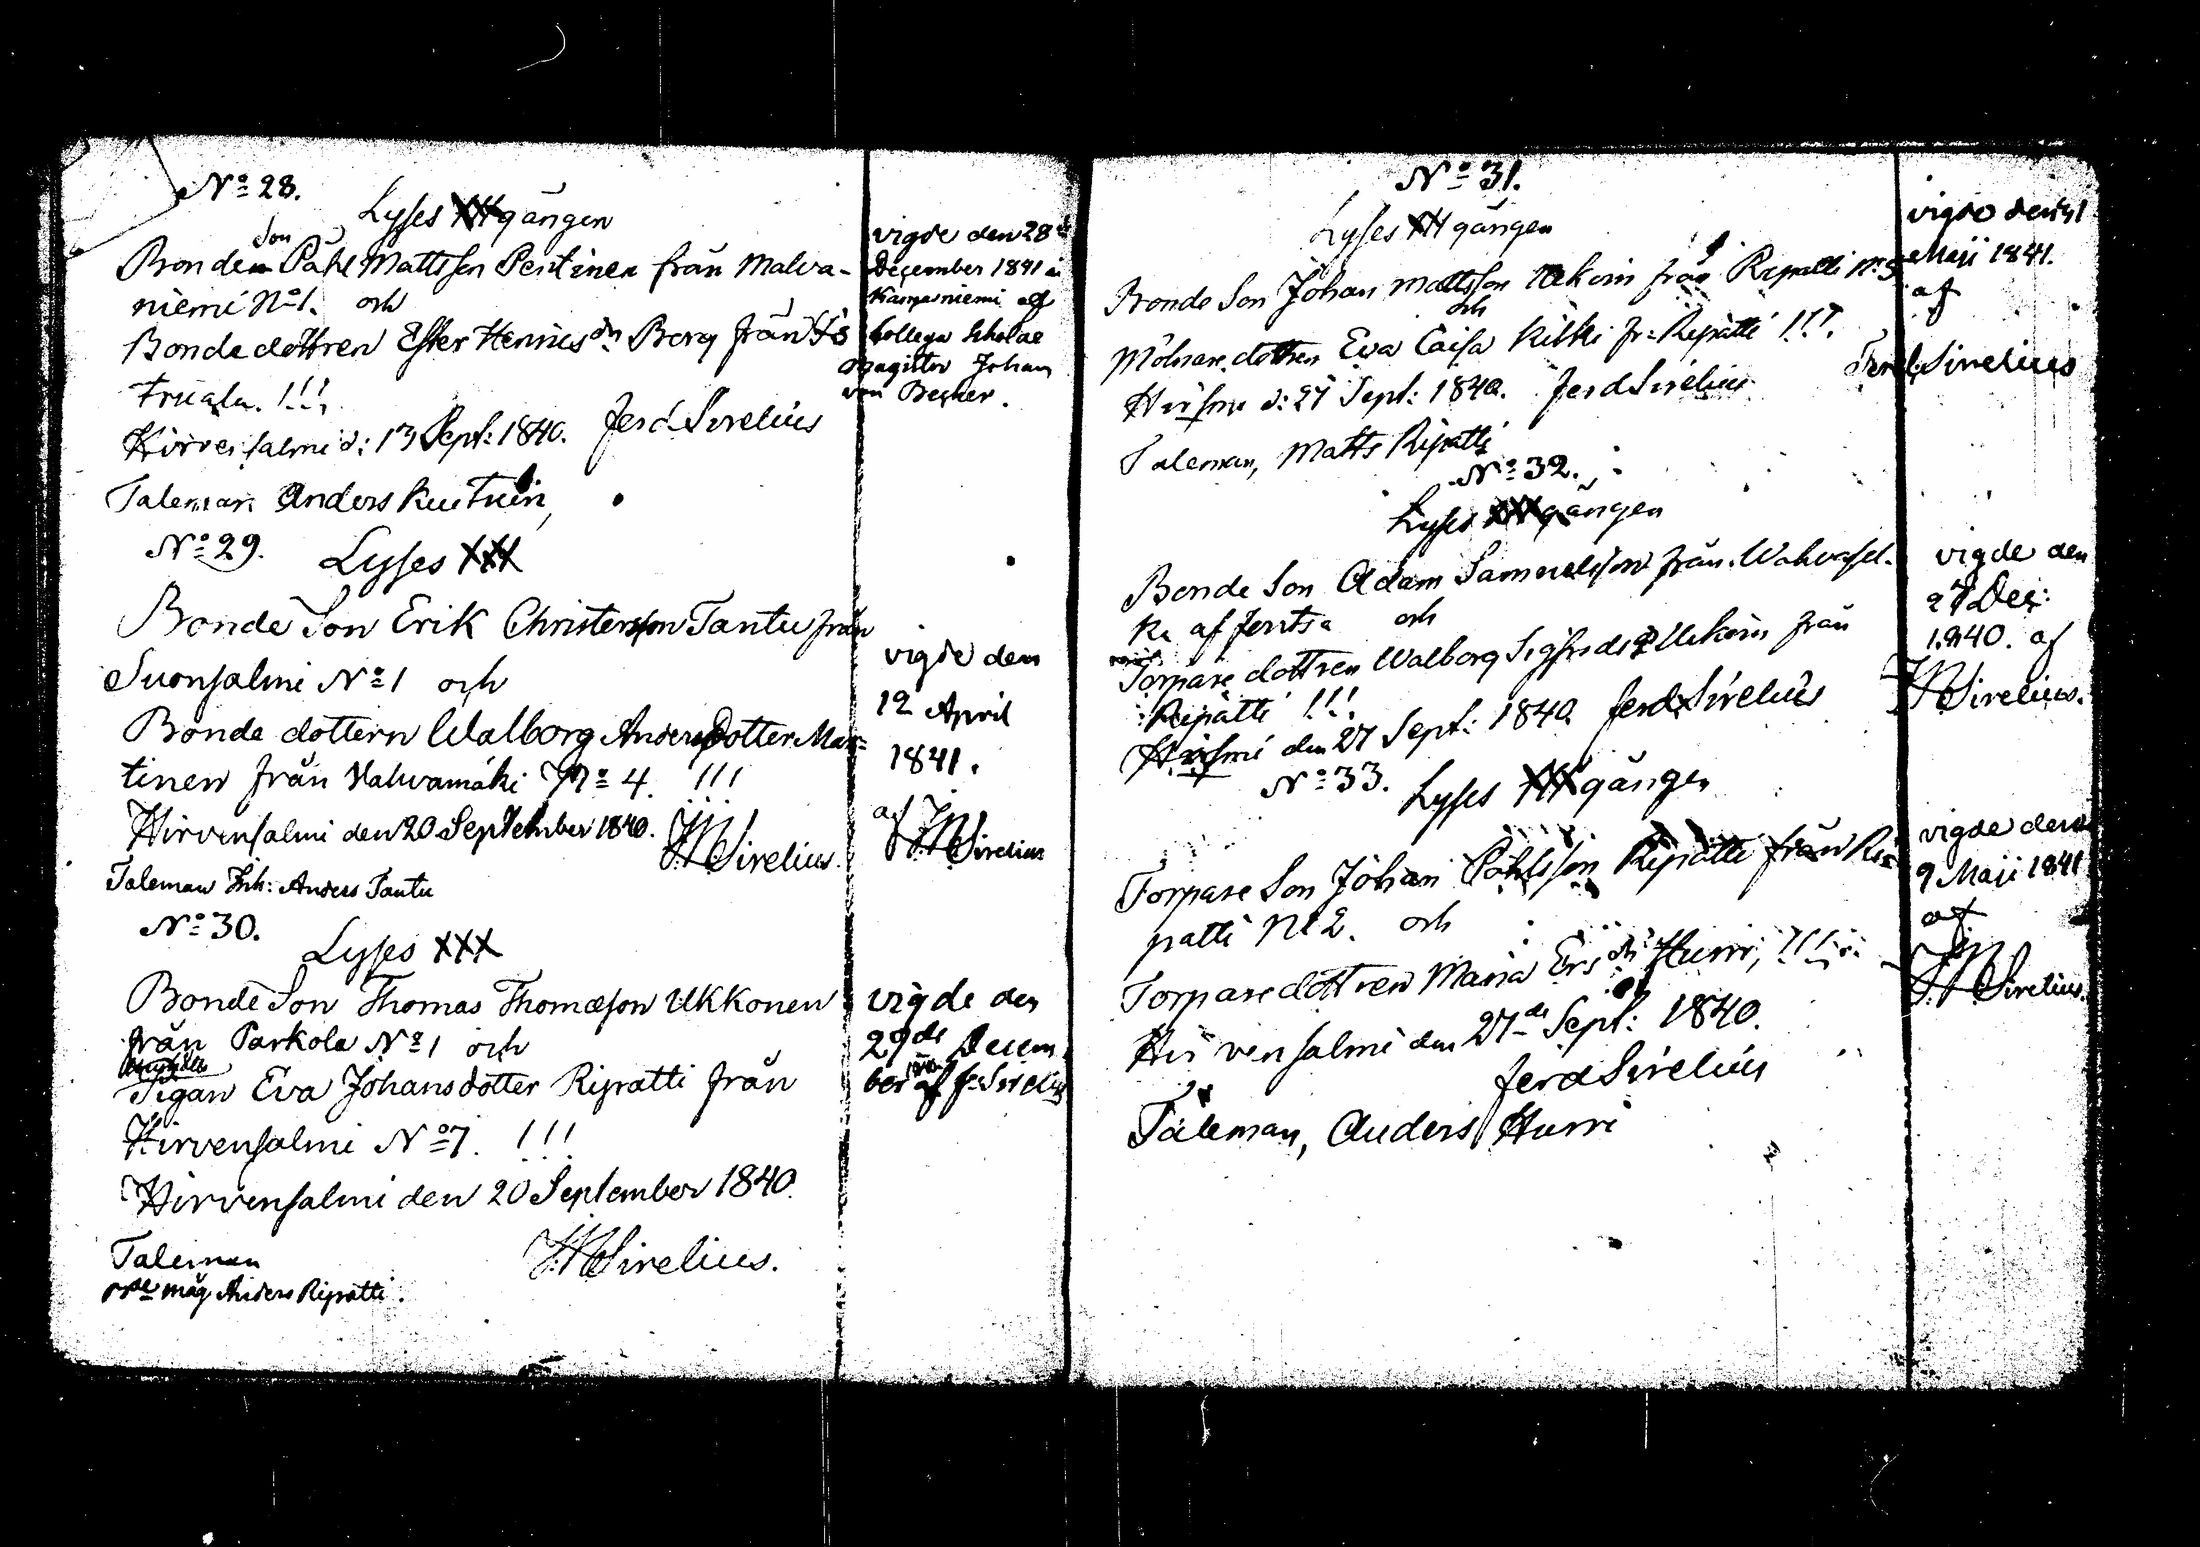 Nº 28.
Lyses XXX gången
Bonden son Påhl Mattsson Pentinen från Malva-
niemi Nº 1. och
Bonde dottren Ester Henricsdr Borg från His
truala. !!!
Hirvensalmi d: 13 Sept: 1840. Ferd Sirelius
Taleman Anders Kuitùin,
vigde den 28de
December 1841 i
Kangasniemi af
Collega Scholae
Magister Johan
von Becker.
Nº 29. Lyses XXX
Bonde Son Erik Christersson Tantu från
Suonsalmi Nº 1 och
Bonde dottern Walborg Anders Dotter Mar=
tinen från Hahvamäki Nº 4. !!!
Hirvensalmi den 20 September 1840. Sirelius.
Taleman Inh: Anders Tantu
vigde den
12 April
1841.
af Sirelius
Nº 30.
Lyses XXX
Bonde Son Thomas Thomasson Ukkonen
från Parkola Nº 1 och
Pigan Eva Johansdotter Ripatti från
Hirvensalmi Nº 7. !!!
Hirvensalmi den 20 September 1840.
Sirelius.
Taleman
måg Anders Ripatti.
vigde den
29de Decem
ber af F. Sirelius
Nº 31.
Lyses XXX gången
Bonde Son Johan Mattsson Ukkoin från Ripatti Nº 3
och
Mölnare dottren Eva Caisa Kilkki fr: Ripatti !!!
d: 27 Sept: 1840. Ferd Sirelius
Taleman, Matts Ripatti
vigde den
Maji 1841.
af
Ferd Sirelius
Nº 32.
Lyses XXX gången
Bonde Son Adam Samuelsson från Wahvasel-
kä af Jentsa och
Torpare dottren Walborg Sigfrids Ukkoin från
Ripatti !!!
den 27 Sept: 1840. Ferd Sirelius
vigde den
27 Dec:
1840. af
Sirelius.
Nº 33. Lyses XXX gången
Torpare Son Johan Påhlsson Ripatti från Ri=
patti Nº 2. och
Torpare dottren Maria Ersdr Hurri, !!!
Hirvensalmi den 27de Sept: 1840.
Ferd Sirelius
Taleman, Anders Hurri
vigde den
9 Maji 1841
af
Sirelius.